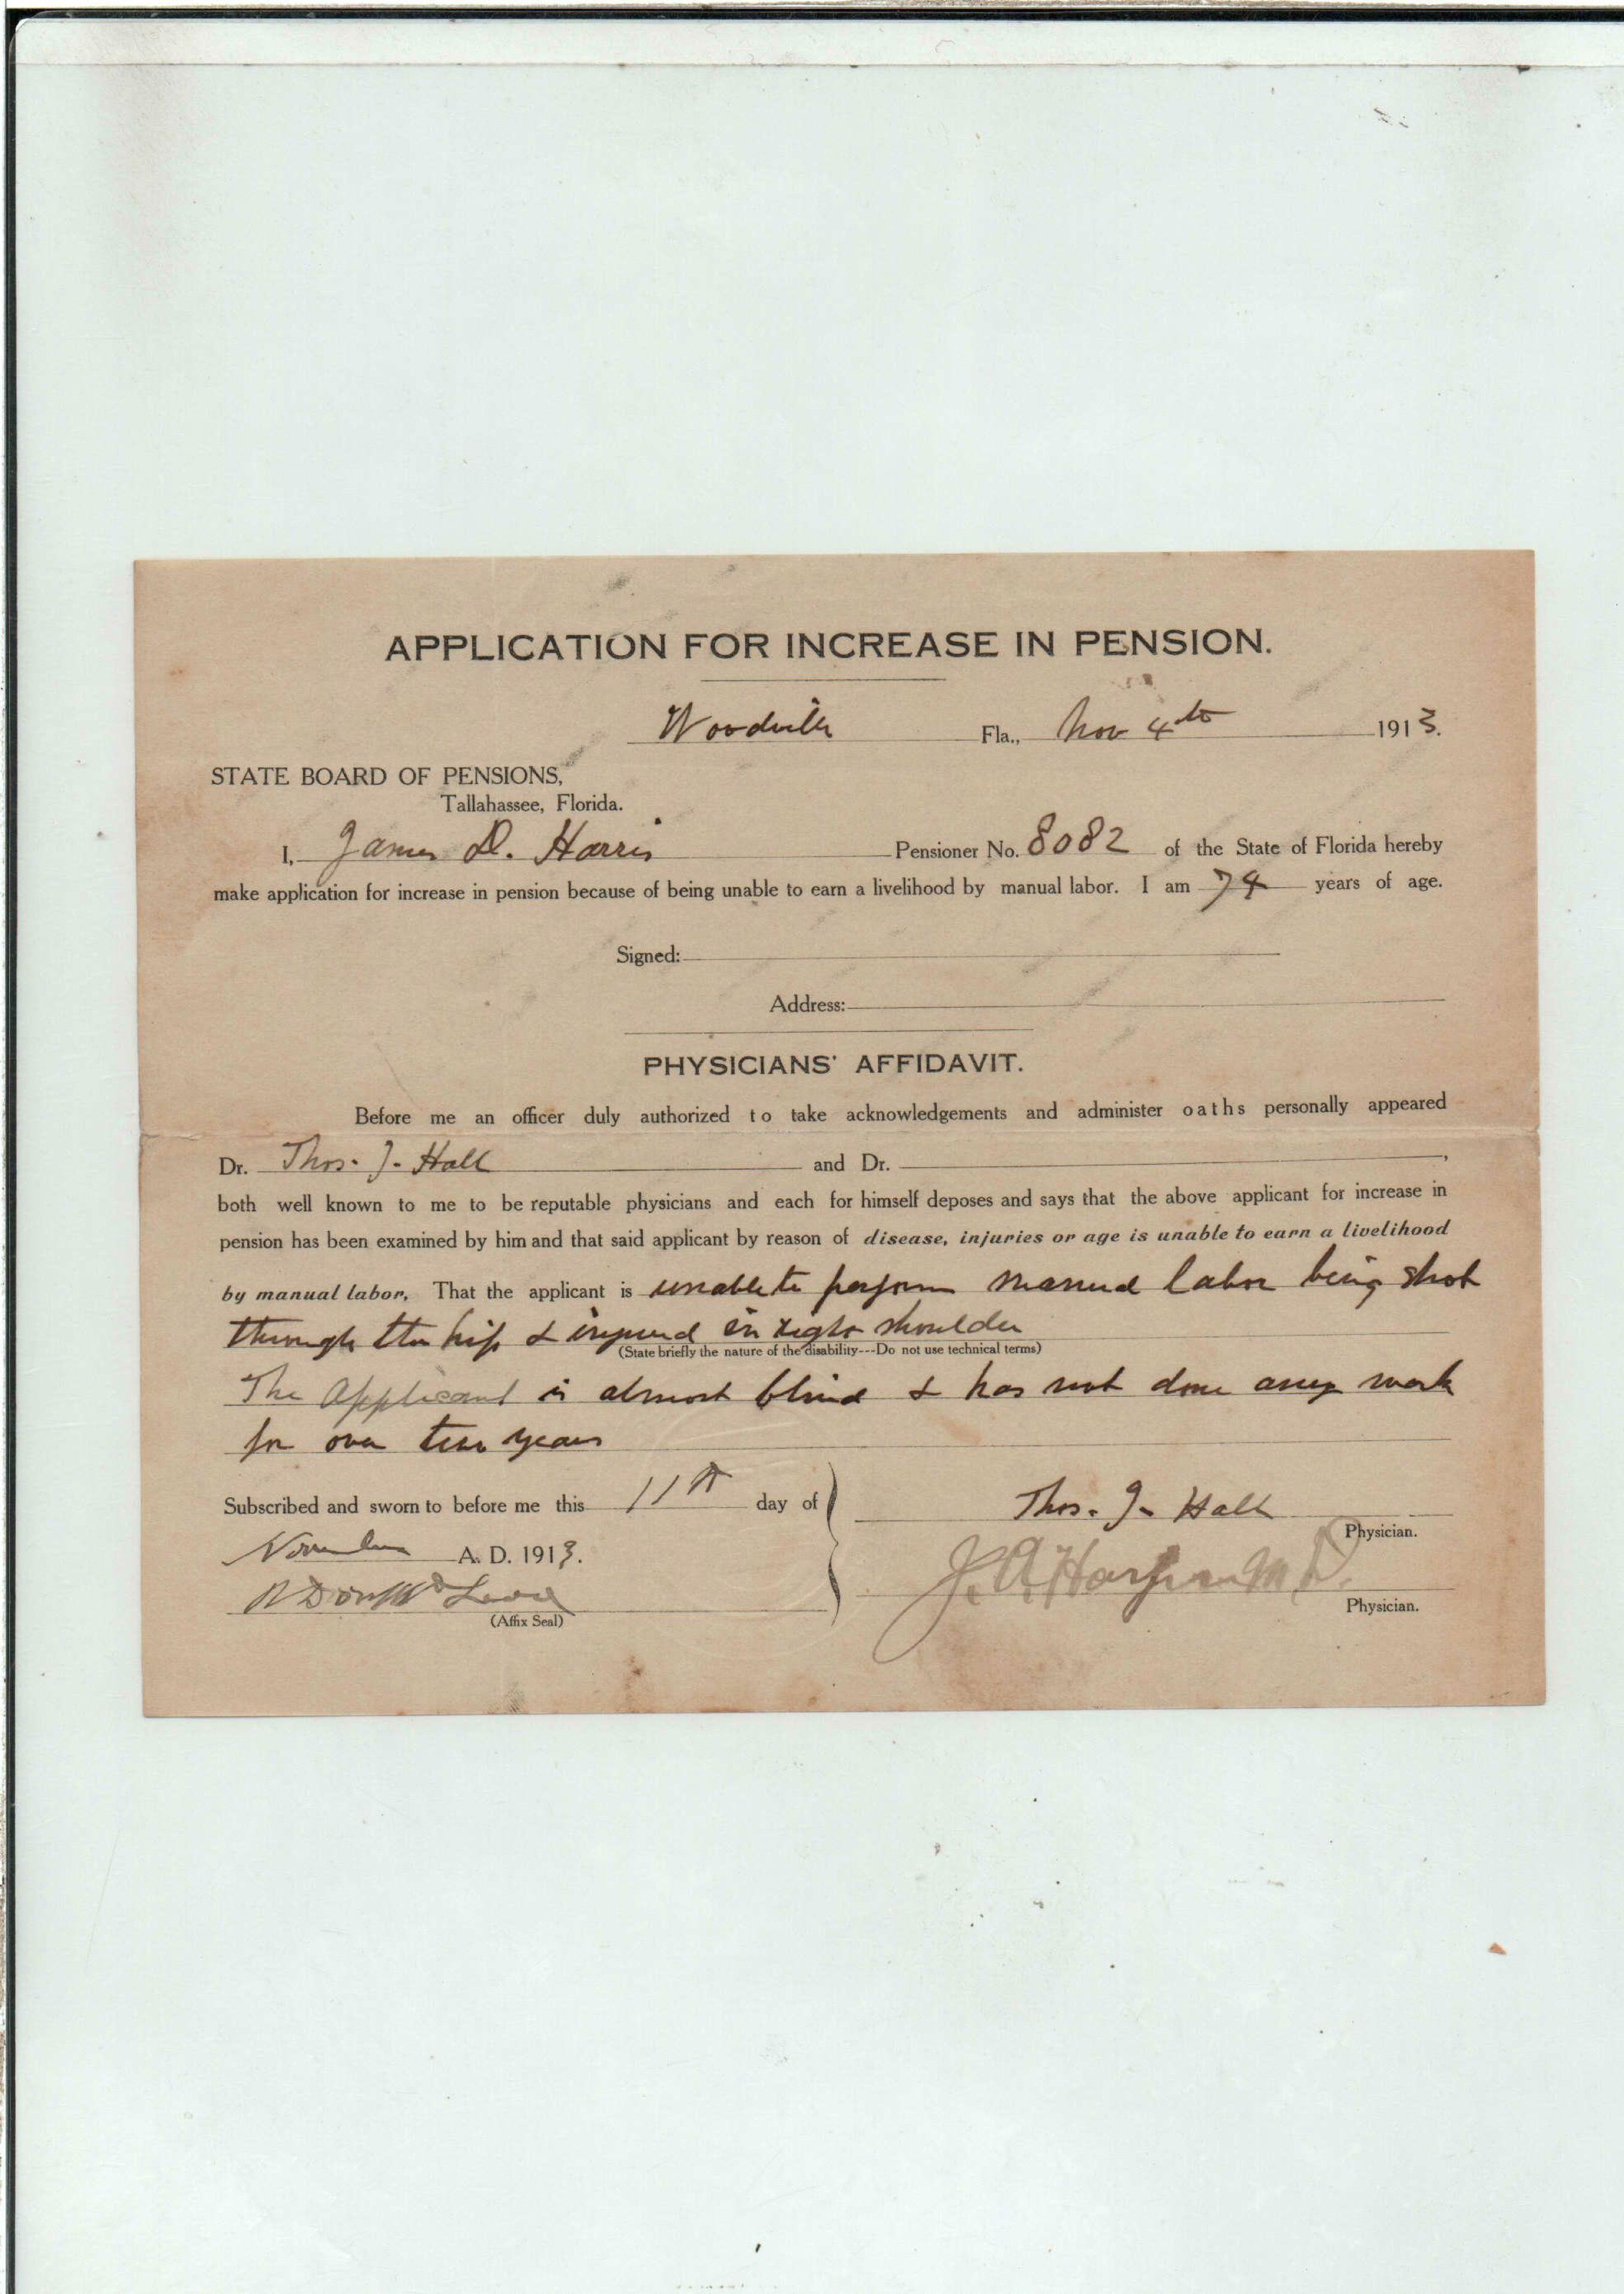 APPLICATION FOR INCREASE IN PENSION.
Woodville Fla., Nov 4th 1913.
STATE BOARD OF PENSIONS,
Tallahassee, Florida.
I, James D. Harris Pensioner No. 8082 of the State of Florida hereby
make application for increase in pension because of being unable to earn a livelihood by manual labor. I am 74 years of age.
Signed:
Address:
PHYSICIANS' AFFIDAVIT.
Before me an officer duly authorized to take acknowledgements and administer oaths personally appeared
Dr. Thos. J. Hall and Dr. ,
both well known to me to be reputable physicians and each for himself deposes and says that the above applicant for increase in
pension has been examined by him and that said applicant by reason of disease, injuries or age is unable to earn a livelihood
by manual labor, That the applicant is unable to perform manual labor being shot
through the hip & injured in right shoulder
(State briefly the nature of the disability---Do not use technical terms)
The Applicant is almost blind & has not done any work
for over ten years
Subscribed and sworn to before me this 11th day of
Thos. J. Hall
Physician.
November A. D. 1913.
J. A. M.D.
Physician.
(Affix Seal)